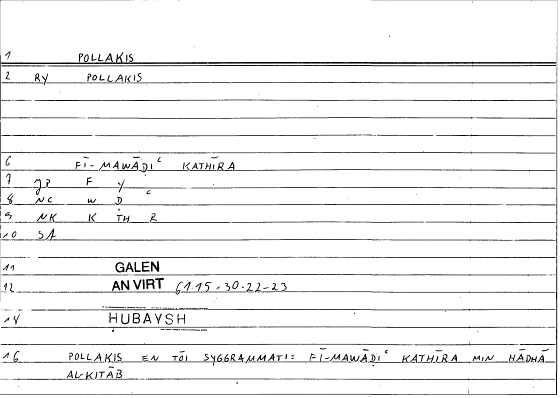 1 POLLAKIS
2 RY POLLAKIS
6 FĪ-MAWĀḌIʿ KATHĪRA
7 JP F Y
8 NC W Ḍ ʿ
9 NK K TH R
10 SA
11 GALEN
12 AN VIRT 61.15-30.22-23
14 ḤUBAYSH
16 POLLAKIS EN TŌI SYGGRAMMATI= FĪ-MAWĀḌIʿ KATHĪRA MIN HĀDHĀ
AL-KITĀB